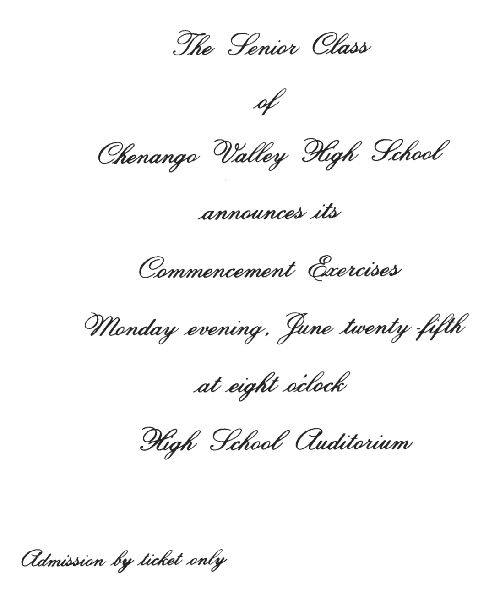 The Senior Class
of
Chenango Valley High School
announces its
Commencement Exercises
Monday evening, June twenty-fifth
at eight o'clock
High School Auditorium
Admission by ticket only